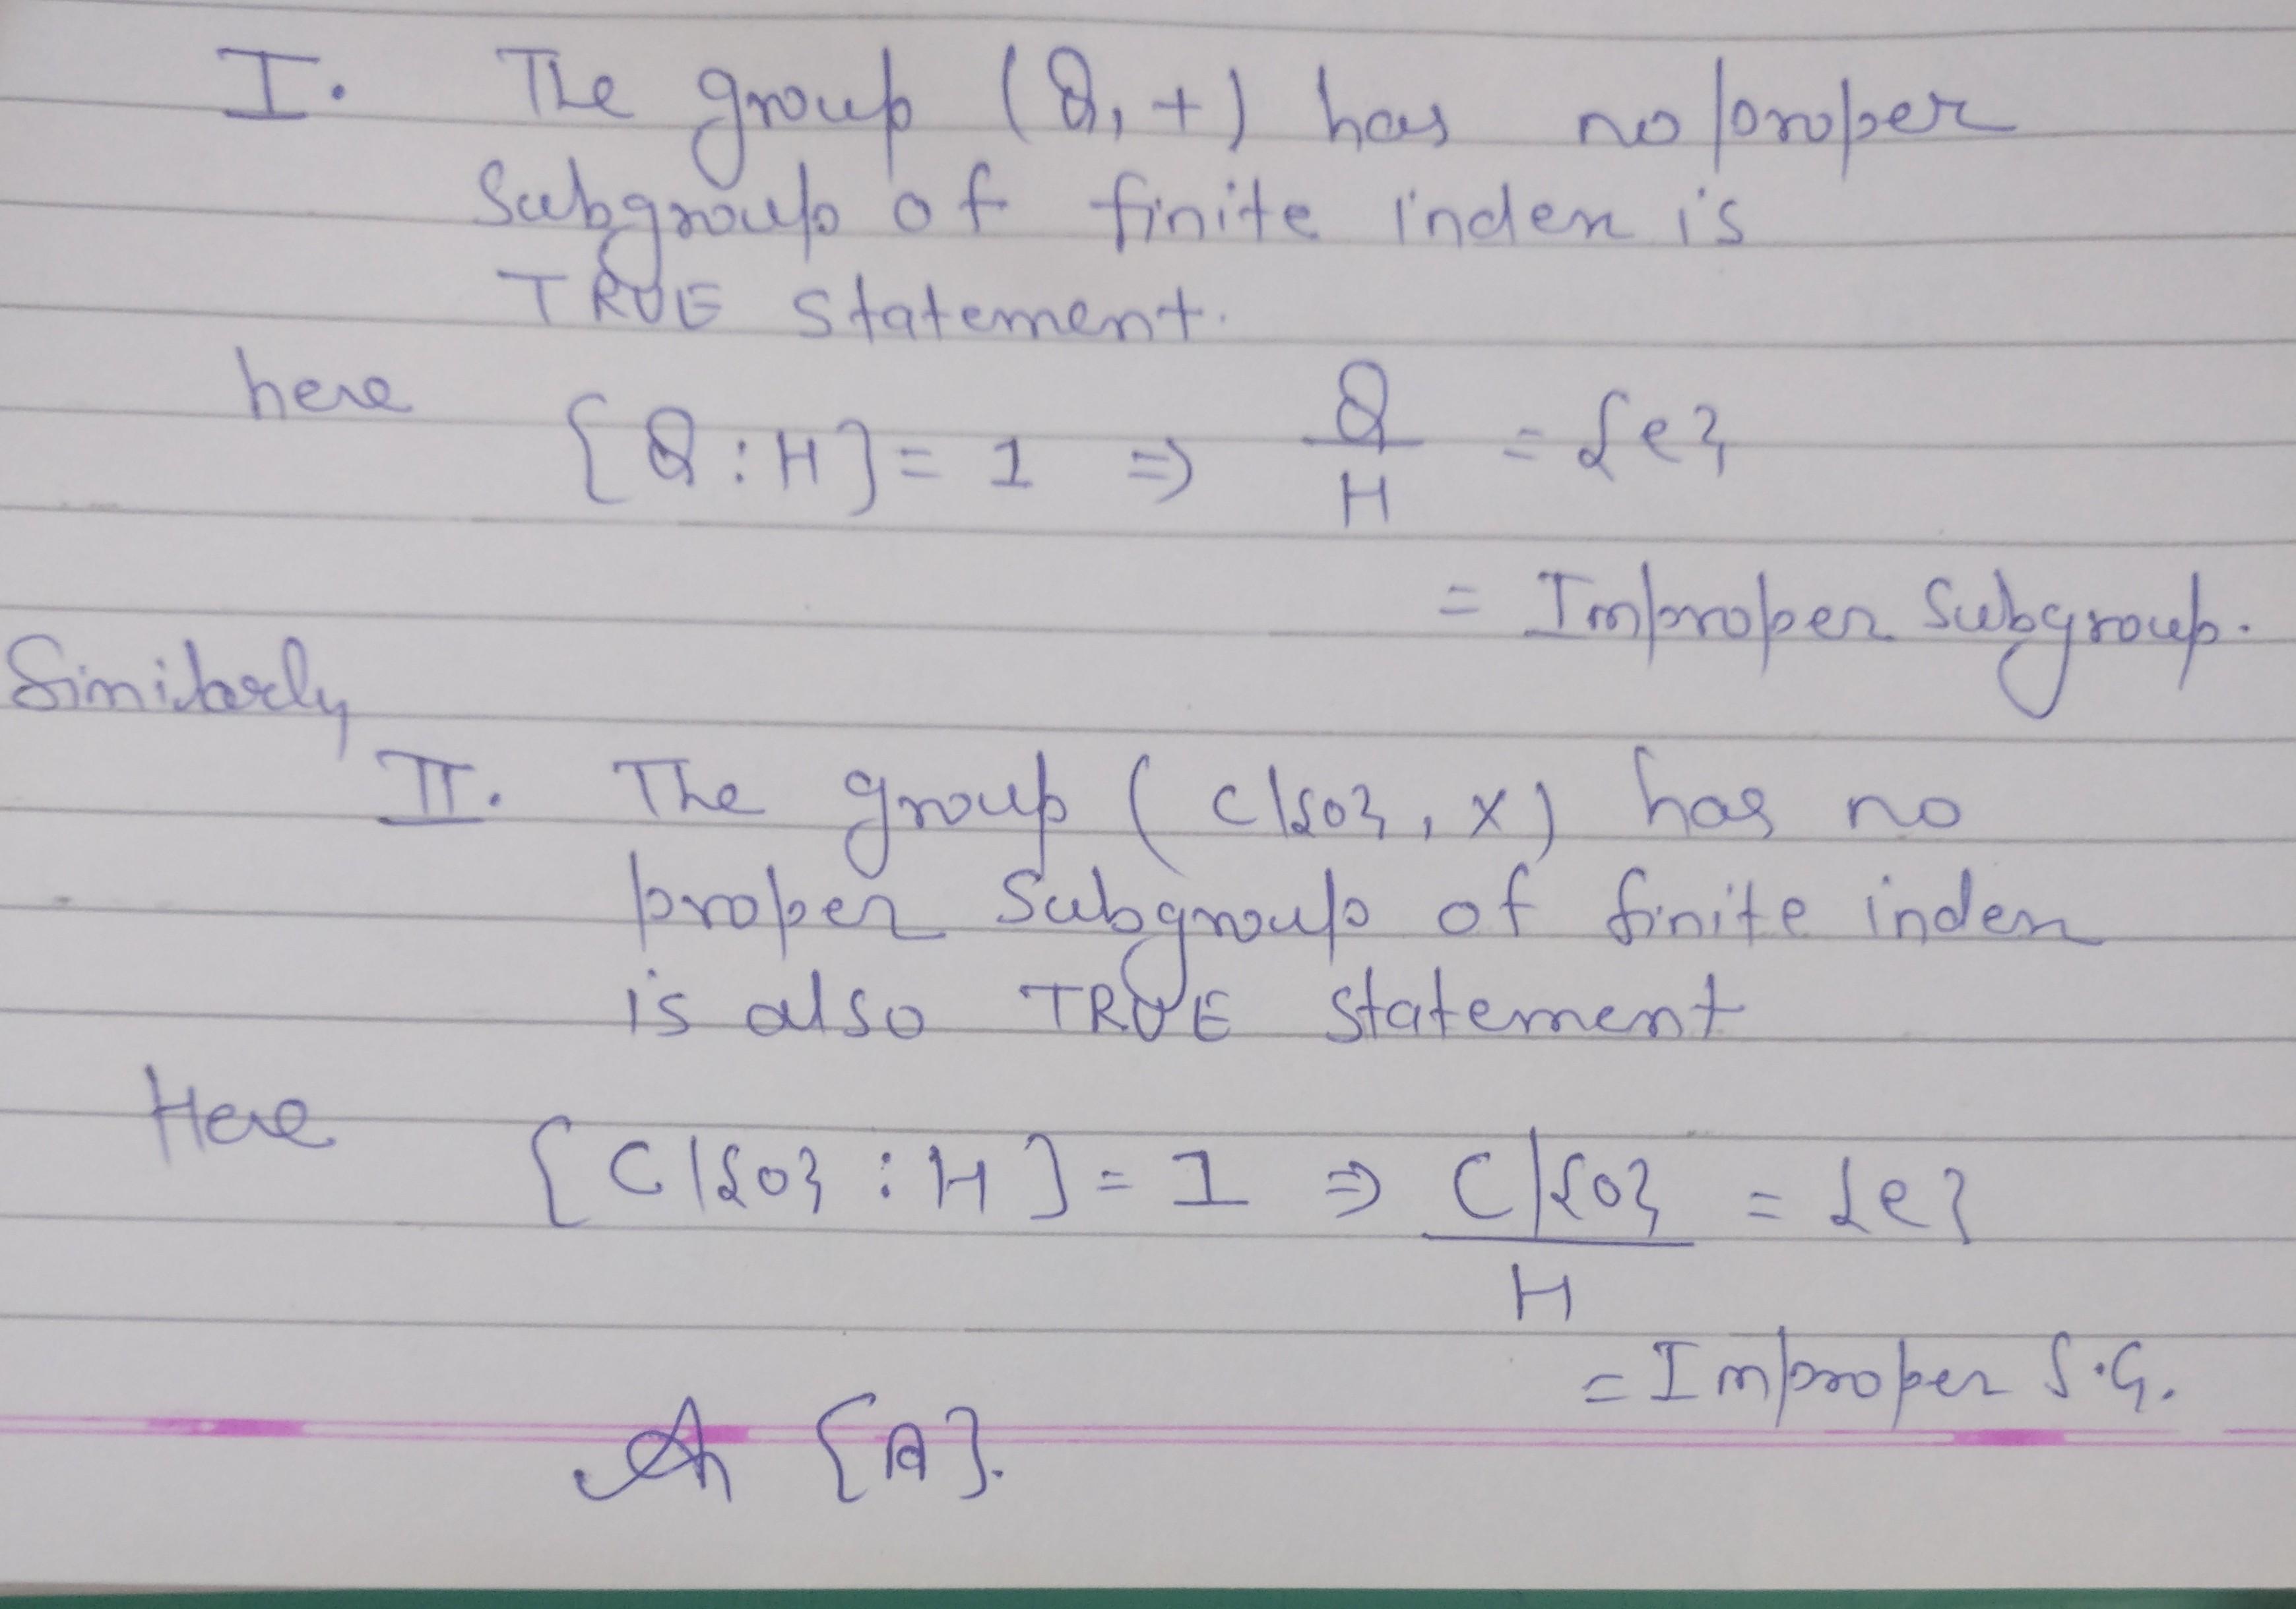 I. The group (Q, +) has no proper
Subgroup of finite index is
TRUE statement.
here [Q : H] = 1 ⇒ Q/H = {e}
= Improper Subgroup.
Similarly
II. The group (C\{0}, ×) has no
proper Subgroup of finite index
is also TRUE statement
Here [C\{0} : H] = 1 ⇒ C\{0}/H = {e}
= Improper S.G.
A [A].